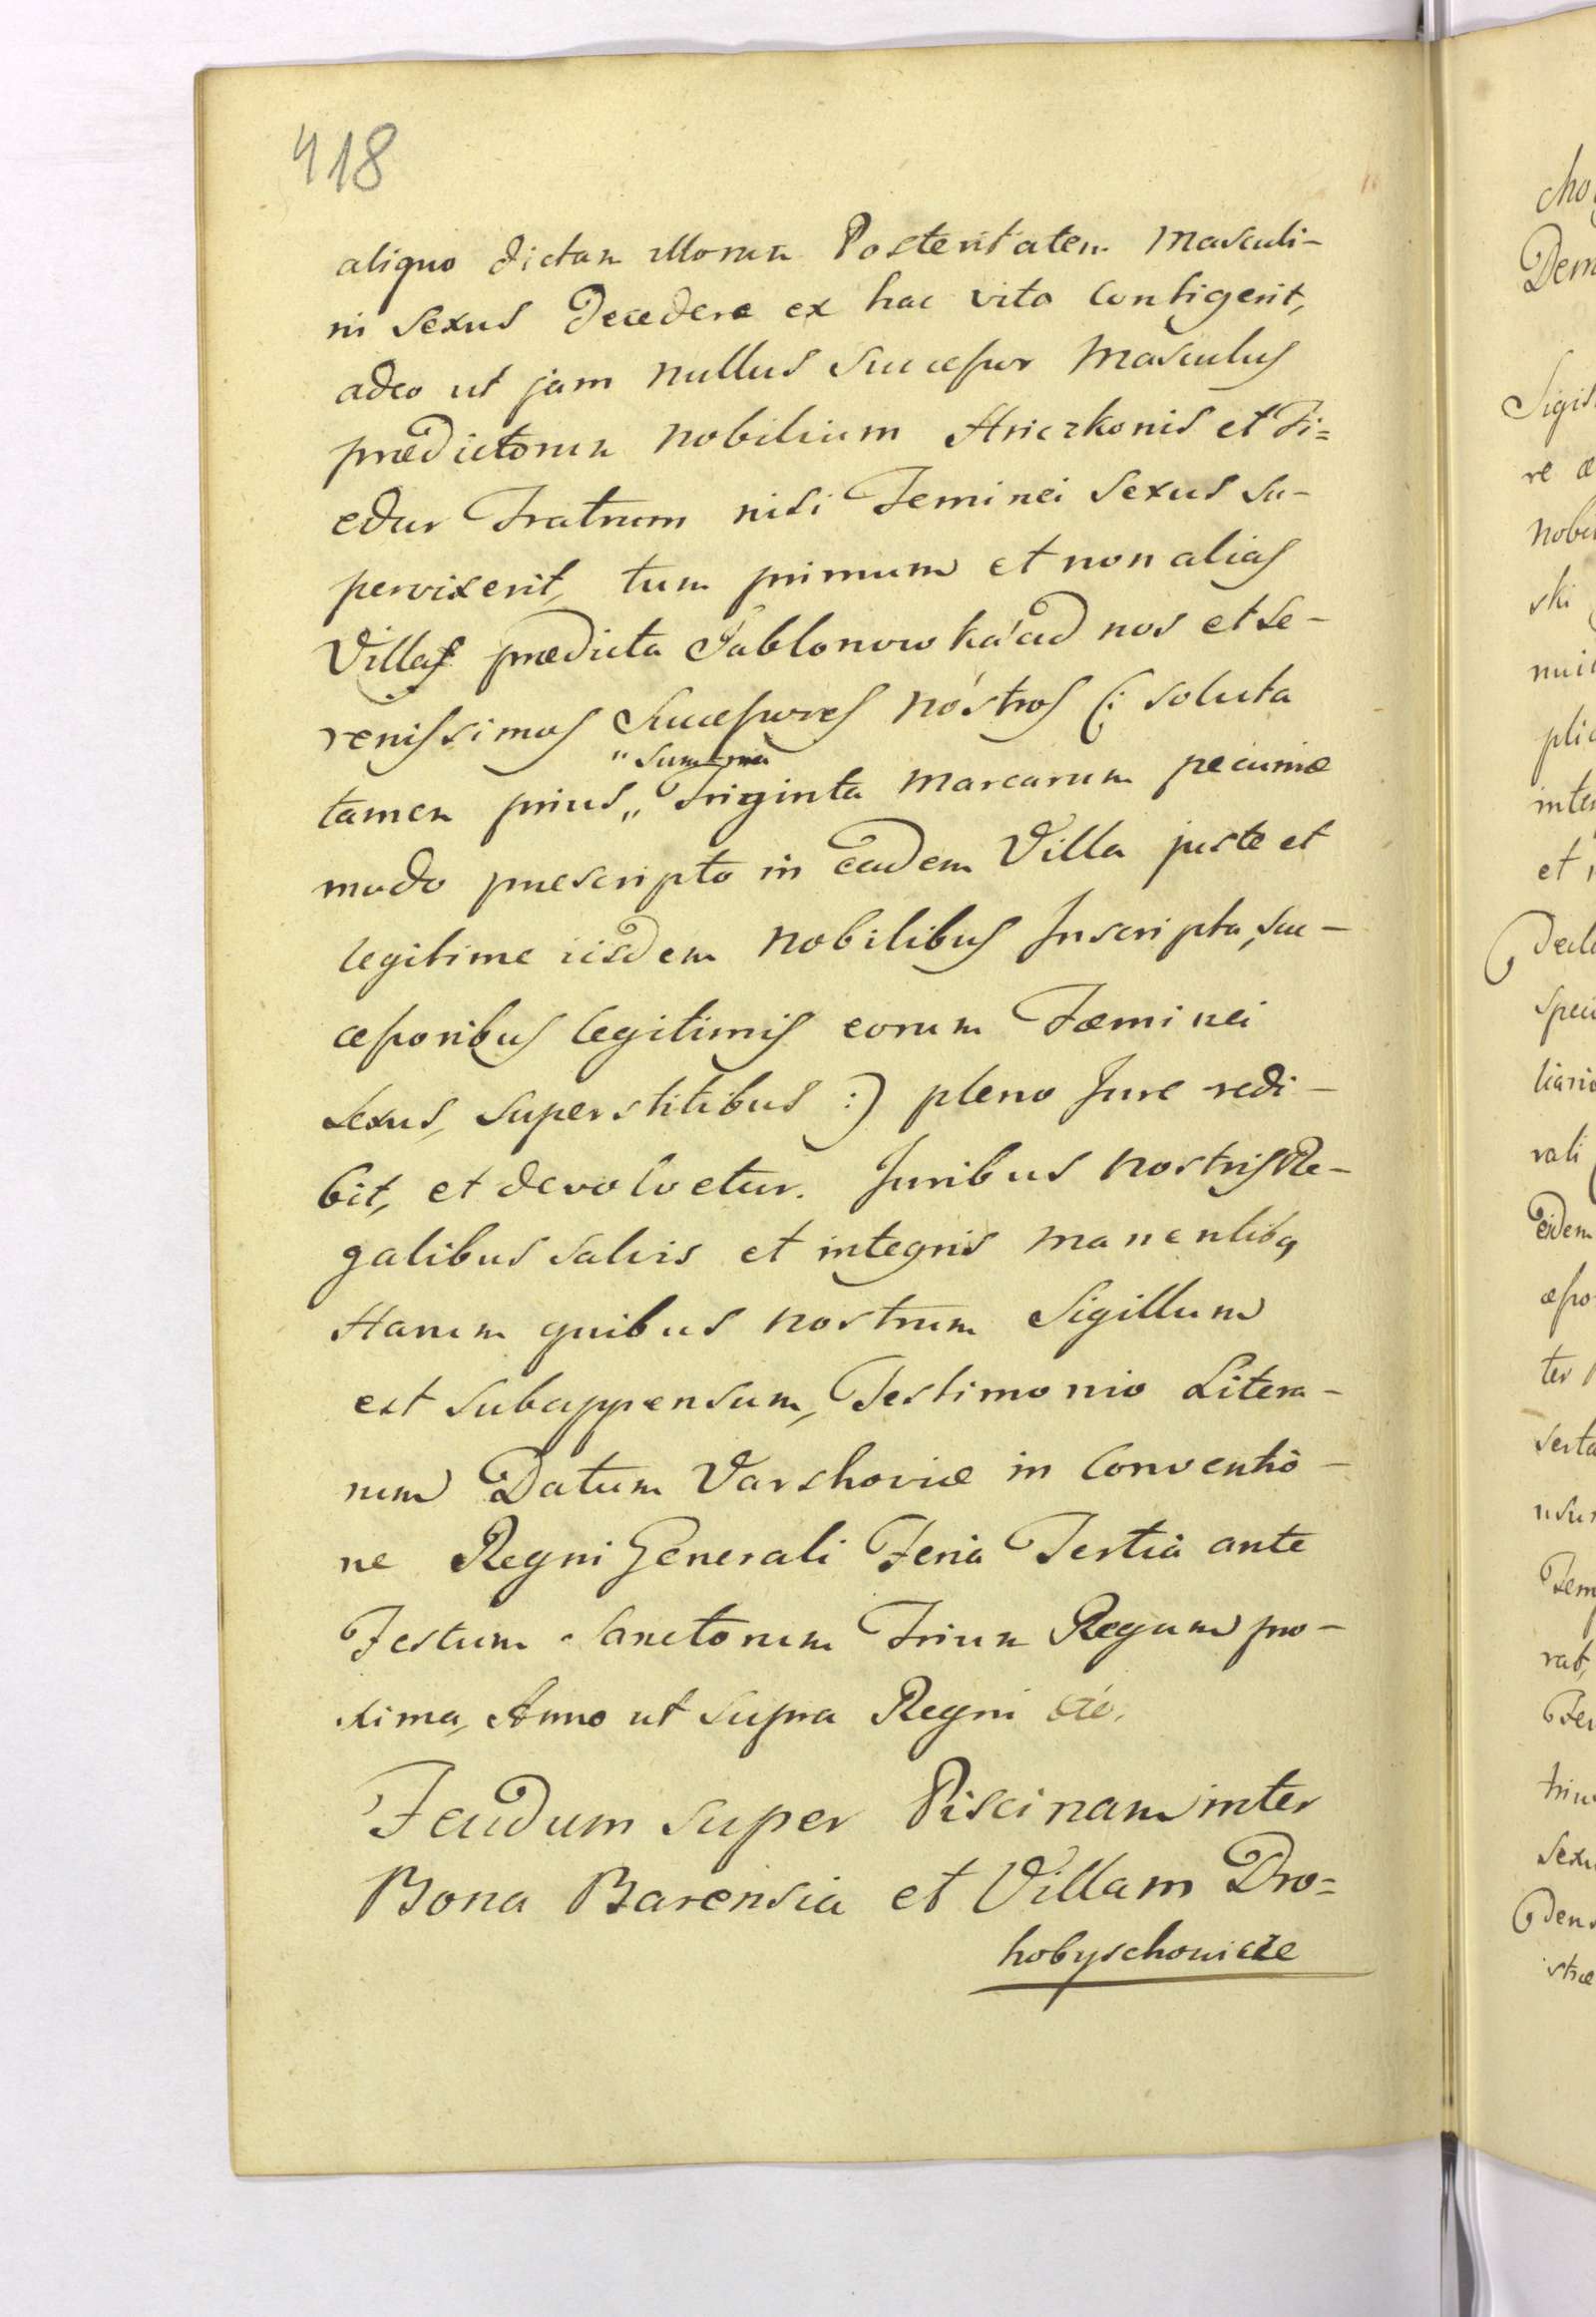 418
aliquo dictan illorum Posteritatem Masculi-
ni Sexus Decedere ex hac vita Contigerit,
adeo ut jam Nullus Successor Masculus
prædictorum Nobilium Hriczkonis et Fi=
edur Fratrum nisi Feminei Sexus su-
pervixerit, tum primum et non alias
Villa prædicta Jablonowka ad nos et Se-
renissimos Successores nostros (: soluta
"Summa
tamen prius „ Triginta Marcarum pecuniæ
modo præscripto in eadem Villa juste et
legitime iisdem Nobilibus Inscripta, suc-
cessoribus legitimis eorum Fæminei
Sexus, superstitibus :) pleno Jure redi-
bit, et devolvetur. Juribus Nostris Re-
galibus salvis et integris manentibq
Harum quibus nostrum Sigillum
est subappensum, Testimonio Litera-
rum Datum Varshoviæ in Conventio-
ne Regni Generali Feria Tertia ante
Festum Sanctorum Trium Regum pro-
xima, Anno ut supra Regni etc.
Feudum super Piscinam inter
Bona Barensia et Villam Dro=
hobyschowicze
cho
Dem
Sigis
re
nobi
ski
plic
inter
et
Decl
spec
liario
rali
Eidem
ter
serta
usu
Fem
rat,
Fe
triu
Sexu
dens
stræ